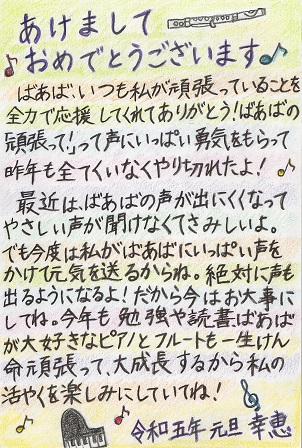 あけまして
おめでとうございます
ばあば、いつも私が頑張っていることを
全力で応援してくれてありがとう！ばあばの
「頑張って！」って声にいっぱい勇気をもらって
昨年も全ていなくやり切れたよ！
最近は、ばあばの声が出にくくなって
やさしい声が聞けなくてさみしいよ。
でも今度は私がばあばにいっぱい声を
かけて元気を送るからね。絶対に声も
出るようになるよ！だから今はお大事に
してね。今年も勉強や読書、ばあば
が大好きなピアノとフルートも一生けん
命頑張って、大成長するから私の
活やくを楽しみにしていてね！
令和五年 元旦 幸恵